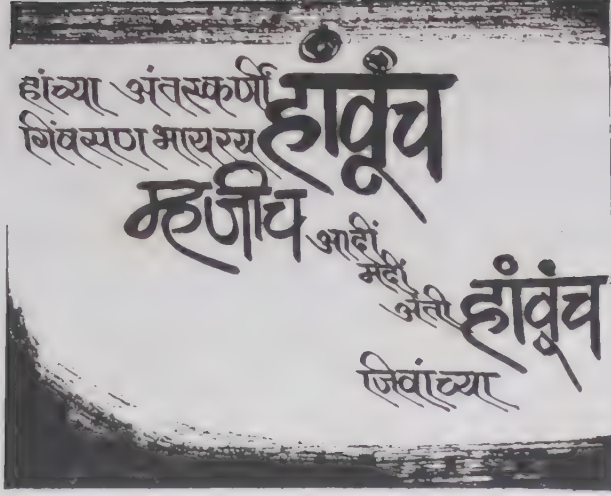 हांच्या अंतस्कर्णीं हांवूंच
गिंवसण भायरय
म्हजीच आदीं
मदीं
अंतीं हांवूंच
जिवांच्या